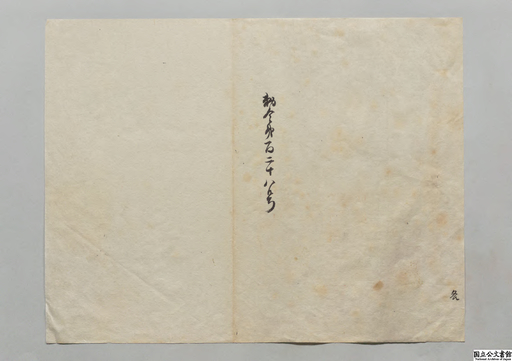 勅令第百二十八号
国立公文書館
National Archives of Japan